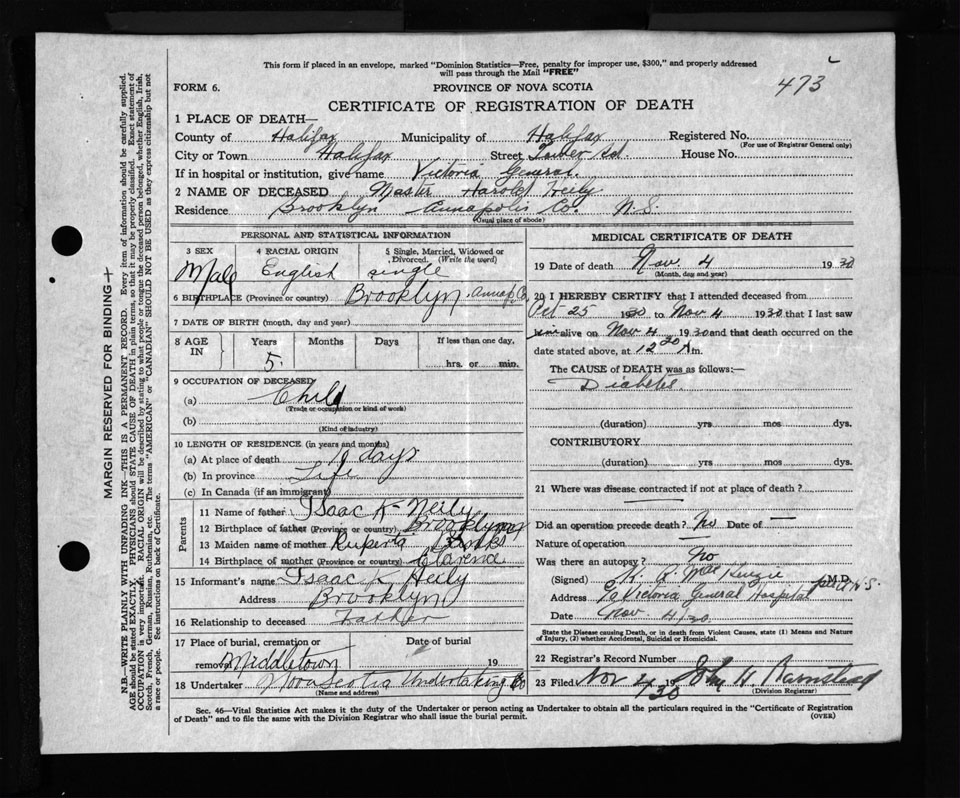 This form if placed in an envelope, marked "Dominion Statistics—Free, penalty for improper use, $300," and properly addressed
will pass through the Mail "FREE"
473
FORM 6.
PROVINCE OF NOVA SCOTIA
CERTIFICATE OF REGISTRATION OF DEATH
1 PLACE OF DEATH—
County of Halifax Municipality of Halifax Registered No.
(For use of Registrar General only)
City or Town Halifax Street House No.
If in hospital or institution, give name Victoria General.
2 NAME OF DECEASED Master Harold Neily
Residence Brooklyn Annapolis Co. N.S.
(Usual place of abode)
PERSONAL AND STATISTICAL INFORMATION
3 SEX 4 RACIAL ORIGIN 5 Single, Married, Widowed or
Divorced. (Write the word)
Male English single
6 BIRTHPLACE (Province or country) Brooklyn Annap. Co.
7 DATE OF BIRTH (month, day and year)
8 AGE IN Years Months Days If less than one day,
5 hrs. or min.
9 OCCUPATION OF DECEASED
(a) Child
(Trade or occupation or kind of work)
(b)
(Kind of industry)
10 LENGTH OF RESIDENCE (in years and months)
(a) At place of death days
(b) In province Life
(c) In Canada (if an immigrant)
Parents
11 Name of father Isaac K Neily
12 Birthplace of father (Province or country) Brooklyn
13 Maiden name of mother Ruperta Banks
14 Birthplace of mother (Province or country) Clarence
15 Informant's name Isaac K Neily
Address Brooklyn
16 Relationship to deceased Father
17 Place of burial, cremation or Date of burial
removal Middletown 19
18 Undertaker Nova Scotia Undertaking Co
(Name and address)
MEDICAL CERTIFICATE OF DEATH
19 Date of death Nov. 4 1930
(Month, day and year)
20 I HEREBY CERTIFY that I attended deceased from
Oct 25 1930 to Nov 4 1930 that I last saw
him alive on Nov 4 1930 and that death occurred on the
date stated above, at 12 20 A m.
The CAUSE of DEATH was as follows:—
Diabetes
(duration) yrs mos dys.
CONTRIBUTORY
(duration) yrs. mos. dys.
21 Where was disease contracted if not at place of death?
Did an operation precede death? No Date of —
Nature of operation —
Was there an autopsy? No
(Signed) K. A. MacKenzie M.D.
Address Victoria General Hospital
Date Nov.
State the Disease causing Death, or in death from Violent Causes, state (1) Means and Nature
of Injury, (2) whether Accidental, Suicidal or Homicidal.
22 Registrar's Record Number
23 Filed Nov 4 1930 John H Barnstead
(Division Registrar)
Sec. 46—Vital Statistics Act makes it the duty of the Undertaker or person acting as Undertaker to obtain all the particulars required in the "Certificate of Registration
of Death" and to file the same with the Division Registrar who shall issue the burial permit.
(OVER)
MARGIN RESERVED FOR BINDING
N.B.—WRITE PLAINLY WITH UNFADING INK—THIS IS A PERMANENT RECORD. Every item of information should be carefully supplied.
AGE should be stated EXACTLY. PHYSICIANS should STATE CAUSE OF DEATH in plain terms, so that it may be properly classified. Exact statement of
OCCUPATION is very important. RACIAL ORIGIN will be described by stating to what people or tongue the deceased person belonged, whether English, Irish,
Scotch, French, German, Russian, Ruthenian, etc. The terms "AMERICAN" or "CANADIAN" SHOULD NOT BE USED as they express citizenship but not
a race or people. See instructions on back of Certificate.